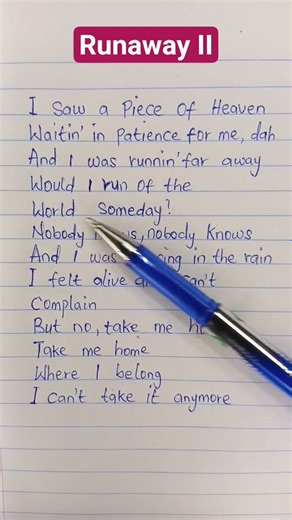 Runaway II
I saw a Piece of Heaven
Waitin' in Patience for me, dah
And I was runnin' far away
Would I run of the
World Someday?
Nobody, nobody knows
And I was in the rain
I felt alive
Complain
But no, take me
Take me home
Where I belong
I can't take it anymore